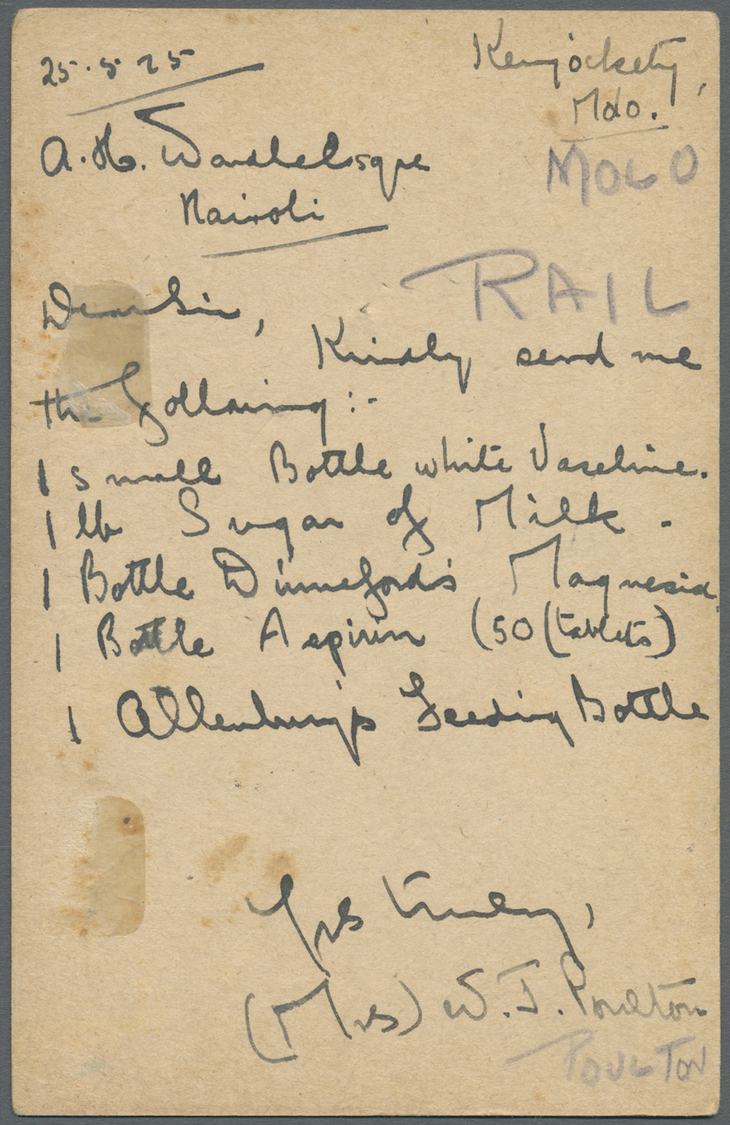 25.5.25
Kenjockety,
Molo.
MOLO
A. H. Wardle Esqre
Nairobi
RAIL
Dear Sir,
Kindly send me
the following :-
1 small Bottle white Vaseline.
1 lb Sugar of Milk.
1 Bottle Dinneford's Magnesia.
1 Bottle Aspirin (50 (tablets)
1 Allenburys Feeding Bottle
Yrs truly,
(Mrs) W. J. Poulton
POULTON